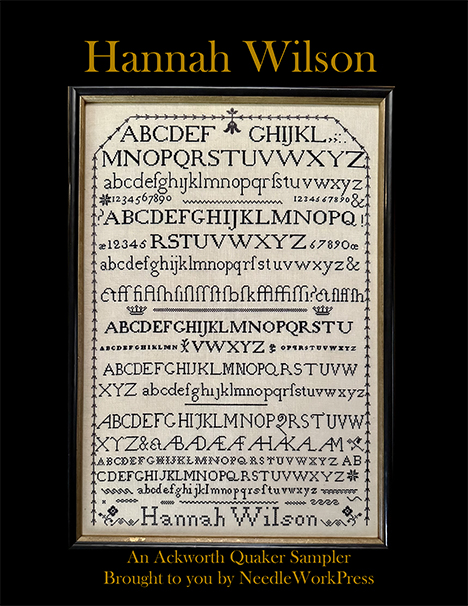 Hannah Wilson
ABCDEF GHIJKL,;:.
MNOPQRSTUVWXYZ
abcdefghijklmnopqrſstuvwxyz
1234567890 1234567890 &
?ABCDEFGHIJKLMNOPQ!
æ12345 RSTUVWXYZ 67890œ
abcdefghijklmnopqrſstuvwxyz&
ABCDEFGHIJKLMNOPQRSTU
ABCDEFGHIKLMN VWXYZ OPQRSTUVWXYZ
ABCDEFGHIJKLMNOPQRSTUVW
XYZ abcdefghijklmnopqrſstuvwxyz
ABCDEFGHIJKLMNOPQRSTUVW
XYZ&
ABCDEFGHIJKLMNOPQRSTUVWXYZ AB
CDEFGHIJKLMNOPQRSTUVWXYZ
abcdefghijklmnopqrſstuvwxyz
Hannah Wilson
An Ackworth Quaker Sampler
Brought to you by NeedleWorkPress